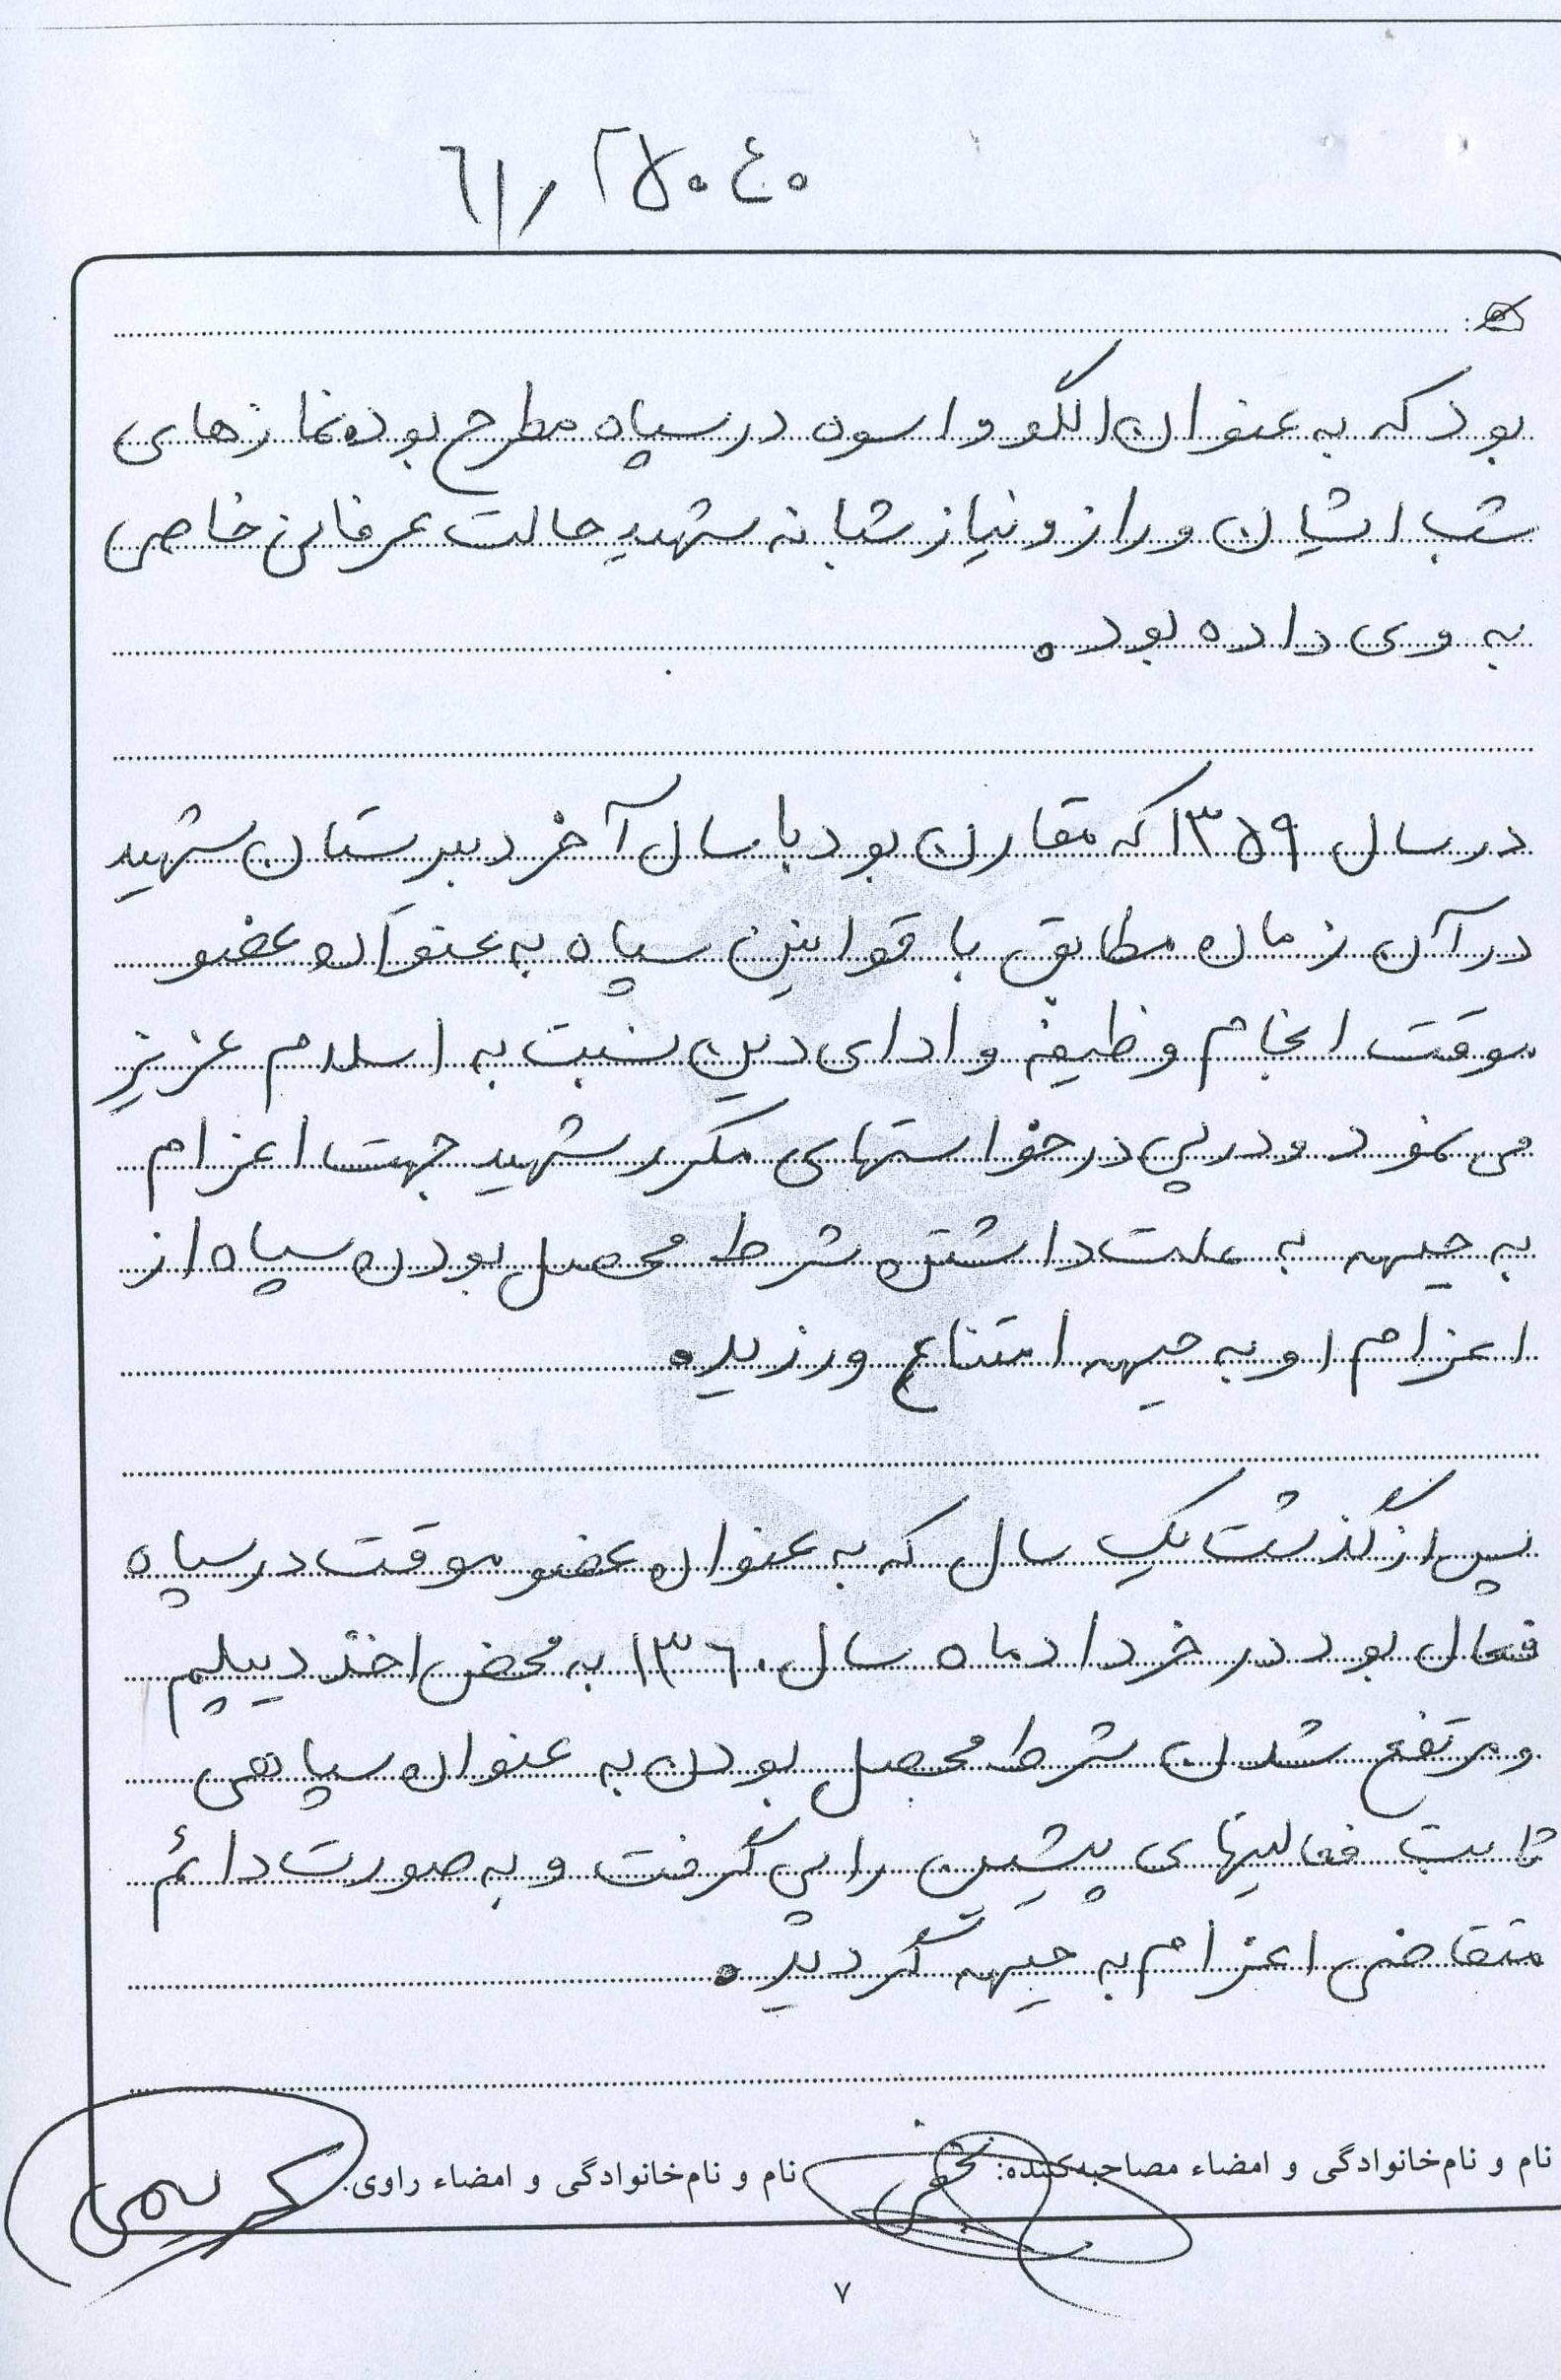 ٦١/٢٥٠٤٠
بود که به عنوان الگو و اسوه در سپاه مطرح بود. نمازهای
شب ایشان و راز و نیاز شبانه شهید حالت عرفانی خاصی
به وی داده بود.
در سال ۱۳۵۹ که مقارن بود با سال آخر دبیرستان شهید
در آن زمان مطابق با قوانین سپاه به عنوان عضو
موقت انجام وظیفه و ادای دین نسبت به اسلام عزیز
می نمود و در پی درخواستهای مکرر شهید جهت اعزام
به جبهه به علت داشتن شرط محصل بودن سپاه از
اعزام او به جبهه امتناع ورزید.
پس از گذشت یک سال که به عنوان عضو موقت در سپاه
فعال بود در خرداد ماه سال ۱۳٦۰ به محض اخذ دیپلم
و مرتفع شدن شرط محصل بودن به عنوان سپاهی
ثابت فعالیتهای پیشین را پی گرفت و به صورت دائم
متقاضی اعزام به جبهه گردید.
نام و نام‌خانوادگی و امضاء مصاحبه‌کننده: نام و نام‌خانوادگی و امضاء راوی: کریمی
۷